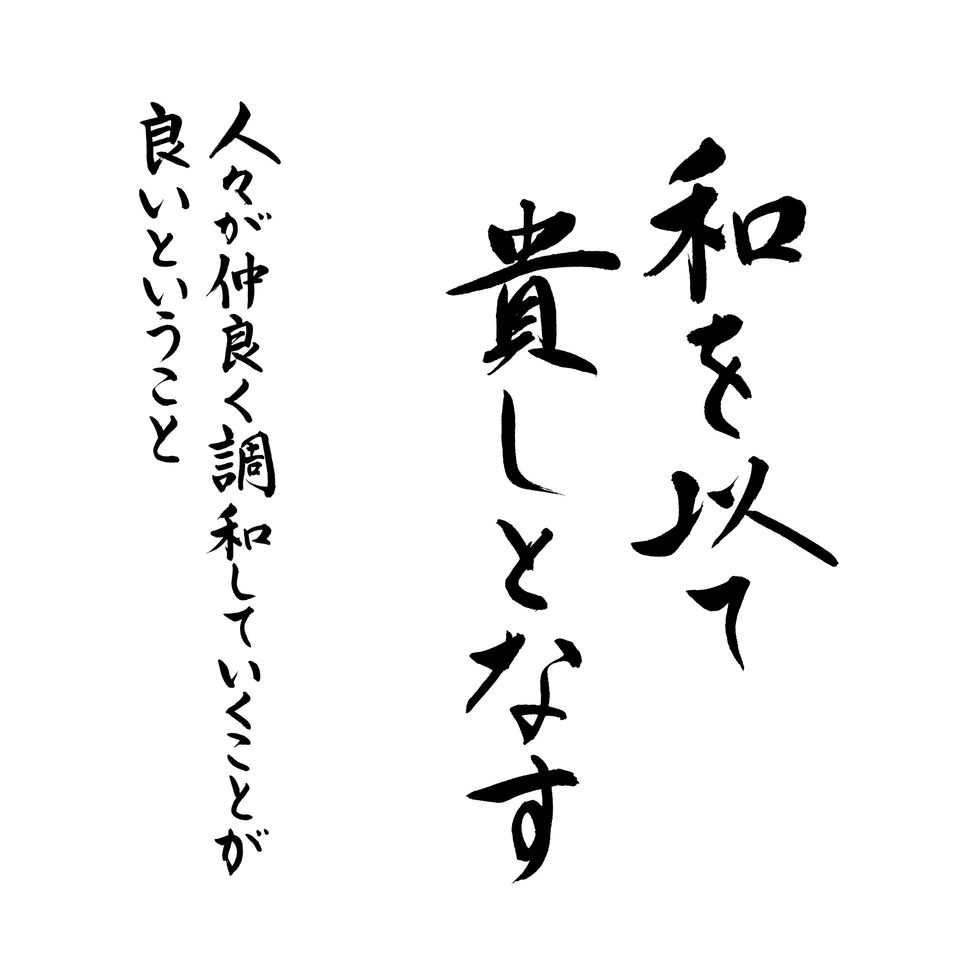 和を以て
貴しとなす
人々が仲良く調和していくことが
良いということ